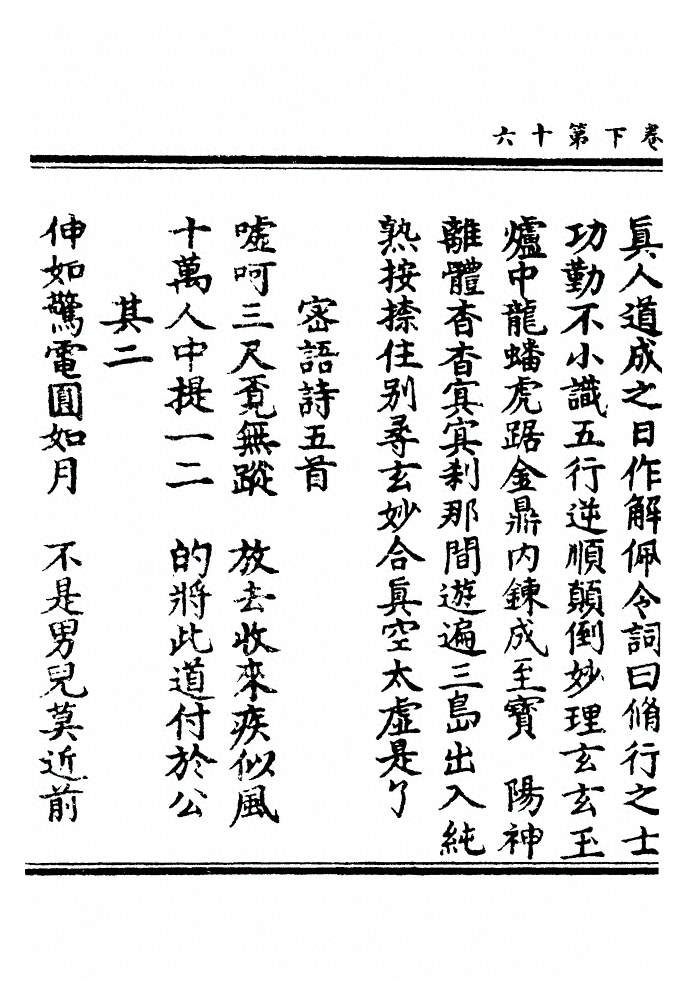 卷下第十六
眞人道成之日作解佩令詞曰脩行之士
功勤不小識五行逆順顛倒妙理玄玄玉
爐中龍蟠虎踞金鼎內鍊成至寶　陽神
離體杳杳㝠㝠刹那間遊遍三島出入純
熟按捺住别尋玄妙合眞空太虛是了
密語詩五首
嘘呵三尺覔無蹤　放去收來疾似風
十萬人中提一二　的將此道付於公
其二
伸如驚電圓如月　不是男兒莫近前